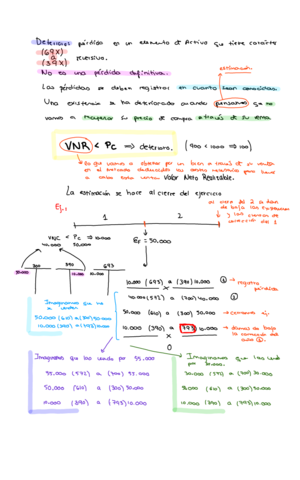 Deterioro: pérdida en un elemento de Activo que tiene carácter
(69X)
a
(39X)
reversivo.
No es una pérdida definitiva.
estimación.
Las pérdidas se deben registrar en cuanto sean conocidas.
Una existencia se ha deteriorado cuando pensamos que no
vamos a recuperar su precio de compra a través de su venta
VNR < PC ⇒ deterioro. (900 < 1000 ⇒ 100)
Lo que vamos a obtener por un bien a través de su venta
en el mercado deduciendo los costes necesarios para llevar
a cabo esta venta. Valor Neto Realizable.
La estimación se hace al cierre del ejercicio
al cierre del 2 a dan
de baja las existencias
y las cuentas de
corrección del 1
Ej.:
1
2
VNC < PC ⇒ 10.000
40.000 50.000
Ef = 50.000
300
390
693
50.000
10.000
10.000
10.000 (693) a (390) 10.000
① → registro
pérdida
x
40.000 (572) a (700) 40.000
②
Imaginamos que no
se venden
50.000 (610) a (300) 50.000
10.000 (390) a (793) 10.000
50.000 (610) a (300) 50.000 → consumo ej.
10.000 (390) a (793) 10.000 → damos de baja
la corrección del
año ①.
x
0
Imaginamos que los vendo por 55.000
55.000 (572) a (700) 55.000
50.000 (610) a (300) 50.000
10.000 (390) a (793) 10.000
Imaginamos que las vendo
por 30.000.
30.000 (572) a (700) 30.000
50.000 (610) a (300) 50.000
10.000 (390) a (793) 10.000